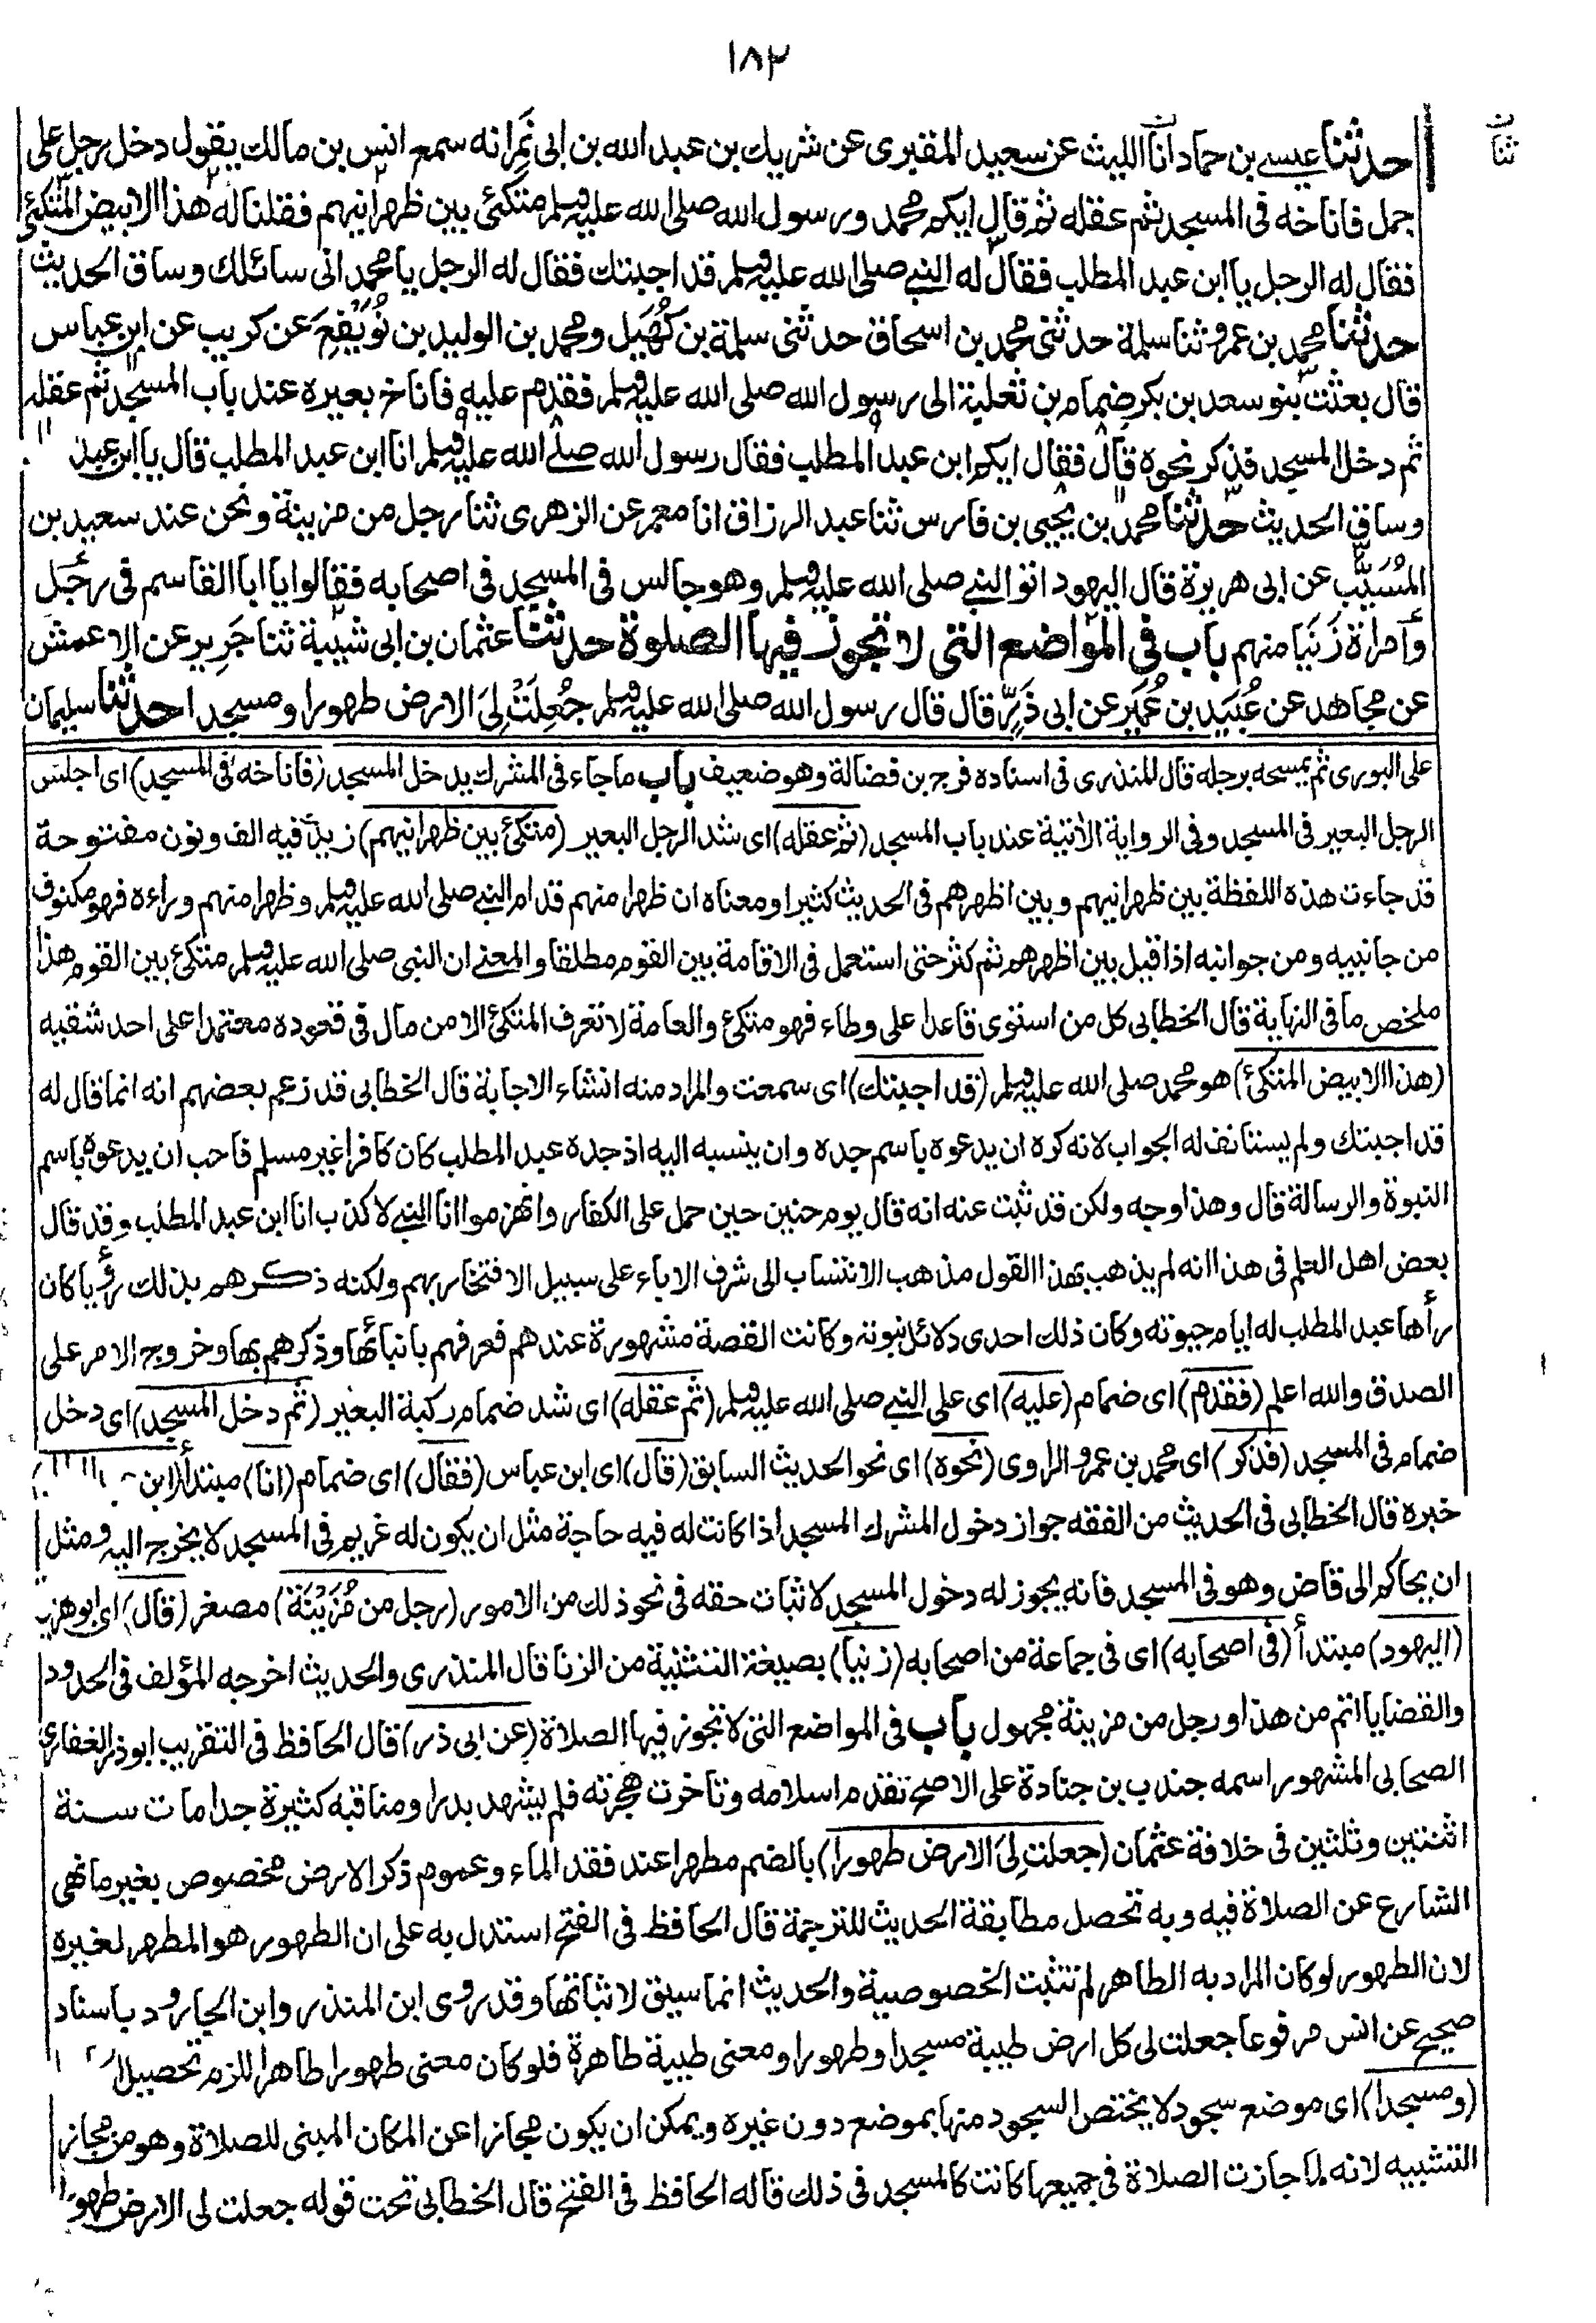 ١٨٢
ثنا
حدثنا عيسى بن حماد انا الليث عن سعيد المقبرى عن شريك بن عبد الله بن ابى نَمِر انه سمع انس بن مالك يقول دخل رجل على
جمل فاناخه فى المسجد ثم عقله ثم قال ايكم محمد ورسول الله صلى الله عليه وسلم متكئ بين ظهرانيهم فقلنا له هذا الابيض المتكئ
فقال له الرجل يا ابن عبد المطلب فقال له النبى صلى الله عليه وسلم قد اجبتك فقال له الرجل يا محمد انى سائلك وساق الحديث
حدثنا محمد بن عمرو ثنا سلمة حدثنى محمد بن اسحاق حدثنى سلمة بن كُهَيل ومحمد بن الوليد بن نُوَيْفِع عن كريب عن ابن عباس
قال بعثت بنو سعد بن بكر ضِمام بن ثعلبة الى رسول الله صلى الله عليه وسلم فقدم عليه فاناخ بعيره عند باب المسجد ثم عقله
ثم دخل المسجد فذكر نحوه قال فقال ايكم ابن عبد المطلب فقال رسول الله صلى الله عليه وسلم انا ابن عبد المطلب قال يا ابن عبد
وساق الحديث حدثنا محمد بن يحيى بن فارس ثنا عبد الرزاق انا معمر عن الزهرى ثنا رجل من مزينة ونحن عند سعيد بن
المُسَيَّب عن ابى هريرة قال اليهود اتوا النبى صلى الله عليه وسلم وهو جالس فى المسجد فى اصحابه فقالوا يا ابا القاسم فى رجل
وامراة زَنَيا منهم باب فى المواضع التى لا تجوز فيها الصلوة حدثنا عثمان بن ابى شيبة ثنا جَرِير عن الاعمش
عن مجاهد عن عُبَيد بن عُمَير عن ابى ذَرٍّ قال قال رسول الله صلى الله عليه وسلم جُعِلَتْ لِىَ الارض طهورا ومسجدا حدثنا سليمان
على البورى ثم يمسحه برجله قال المنذرى فى اسناده فرج بن فضالة وهو ضعيف باب ماجاء فى المشرك يدخل المسجد (فاناخه فى المسجد) اى اجلس
الرجل البعير فى المسجد وفى الرواية الاتية عند باب المسجد (ثم عقله) اى شد الرجل البعير (متكئ بين ظهرانيهم) زيد فيه الف ونون مفتوحة
قد جاءت هذه اللفظة بين ظهرانيهم وبين اظهرهم فى الحديث كثيرا ومعناه ان ظهرا منهم قدام النبى صلى الله عليه وسلم وظهرا منهم وراءه فهو مكنوف
من جانبيه ومن جوانبه اذا قيل بين اظهرهم ثم كثر حتى استعمل فى الاقامة بين القوم مطلقا والمعنى ان النبى صلى الله عليه وسلم متكئ بين القوم هذا
ملخص ما فى النهاية قال الخطابى كل من استوى قاعدا على وطاء فهو متكئ والعامة لا تعرف المتكئ الا من مال فى قعوده معتمدا على احد شقيه
(هذا الابيض المتكئ) هو محمد صلى الله عليه وسلم (قد اجبتك) اى سمعت والمراد منه انشاء الاجابة قال الخطابى قد زعم بعضهم انه انما قال له
قد اجبتك ولم يستانف له الجواب لانه كره ان يدعوه باسم جده وان ينسبه اليه اذ جده عبد المطلب كان كافرا غير مسلم فاحب ان يدعوه باسم
النبوة والرسالة قال وهذا وجه ولكن قد ثبت عنه انه قال يوم حنين حين حمل على الكفار وانهزموا انا النبى لا كذب انا ابن عبد المطلب وقد قال
بعض اهل العلم فى هذا انه لم يذهب بهذا القول مذهب الانتساب الى شرف الاباء على سبيل الافتخار بهم ولكنه ذكرهم بذلك رؤيا كان
رأها عبد المطلب له ايام حيوته وكان ذلك احدى دلائل نبوته وكانت القصة مشهورة عندهم فعرفهم بانبائها وذكرهم بها وخروج الامر على
الصدق والله اعلم (فقدم) اى ضمام (عليه) اى على النبى صلى الله عليه وسلم (ثم عقله) اى شد ضمام ركبة البعير (ثم دخل المسجد) اى دخل
ضمام فى المسجد (فذكر) اى محمد بن عمرو الراوى (نحوه) اى نحو الحديث السابق (قال) اى ابن عباس (فقال) اى ضمام (انا) مبتدأ (ابن
خبره قال الخطابى فى الحديث من الفقه جواز دخول المشرك المسجد اذا كانت له فيه حاجة مثل ان يكون له غريم فى المسجد لا يخرج اليه ومثل
ان يحاكم الى قاض وهو فى المسجد فانه يجوز له دخول المسجد لاثبات حقه فى نحو ذلك من الامور (رجل من مُزَيْنَة) مصغر (قال) اى ابو هريرة
(اليهود) مبتدأ (فى اصحابه) اى فى جماعة من اصحابه (زنيا) بصيغة التثنية من الزنا قال المنذرى والحديث اخرجه المؤلف فى الحدود
والقضايا اتم من هذا ورجل من مزينة مجهول باب فى المواضع التى لا تجوز فيها الصلاة (عن ابى ذر) قال الحافظ فى التقريب ابو ذر الغفارى
الصحابى المشهور اسمه جندب بن جنادة على الاصح تقدم اسلامه وتاخرت هجرته فلم يشهد بدرا ومناقبه كثيرة جدا مات سنة
اثنتين وثلثين فى خلافة عثمان (جعلت لِىَ الارض طهورا) بالضم مطهرا عند فقد الماء وعموم ذكر الارض مخصوص بغير ما نهى
الشارع عن الصلاة فيه وبه تحصل مطابقة الحديث للترجمة قال الحافظ فى الفتح استدل به على ان الطهور هو المطهر لغيره
لان الطهور لو كان المراد به الطاهر لم تثبت الخصوصية والحديث انما سيق لاثباتها وقد روى ابن المنذر وابن الجارود باسناد
صحيح عن انس مرفوعا جعلت لى كل ارض طيبة مسجدا وطهورا ومعنى طيبة طاهرة فلو كان معنى طهورا طاهرا للزم تحصيل
(ومسجدا) اى موضع سجود لا يختص السجود منها بموضع دون غيره ويمكن ان يكون مجازا عن المكان المبنى للصلاة وهو من مجاز
التشبيه لانه لما جازت الصلاة فى جميعها كانت كالمسجد فى ذلك قاله الحافظ فى الفتح قال الخطابى تحت قوله جعلت لى الارض طهورا